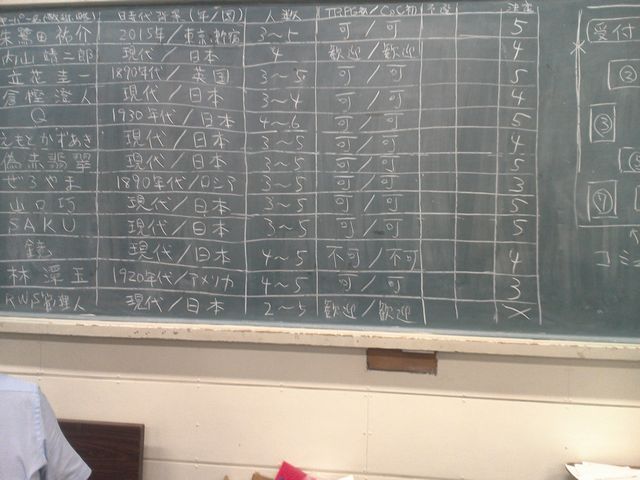 キーパー名(敬称略) 時代背景(年/国) 人数 TRPG初/CoC初 卓
朱鷺田祐介 2015年/東京、新宿 3〜5 可/可 5
内山靖二郎 現代/日本 4 歓迎/歓迎 4
立花圭一 1890年代/英国 3〜5 可/可 5
倉樫澄人 現代/日本 3〜4 可/可 4
Q 1930年代/日本 4〜6 可/可 5
えもとかずあき 現代/日本 3〜5 可/可 4
偽赤翡翠 現代/日本 3〜5 可/可 5
ぜろやま 1890年代/ロシア 3〜5 可/可 3
山口巧 現代/日本 3〜5 可/可 5
SAKU 現代/日本 3〜5 可/可 5
鏡 現代/日本 4〜5 不可/不可 4
林澪五 1920年代/アメリカ 4〜5 可/可 3
RWS管理人 現代/日本 2〜5 歓迎/歓迎 ×
受付
②
③
⑦
コミ